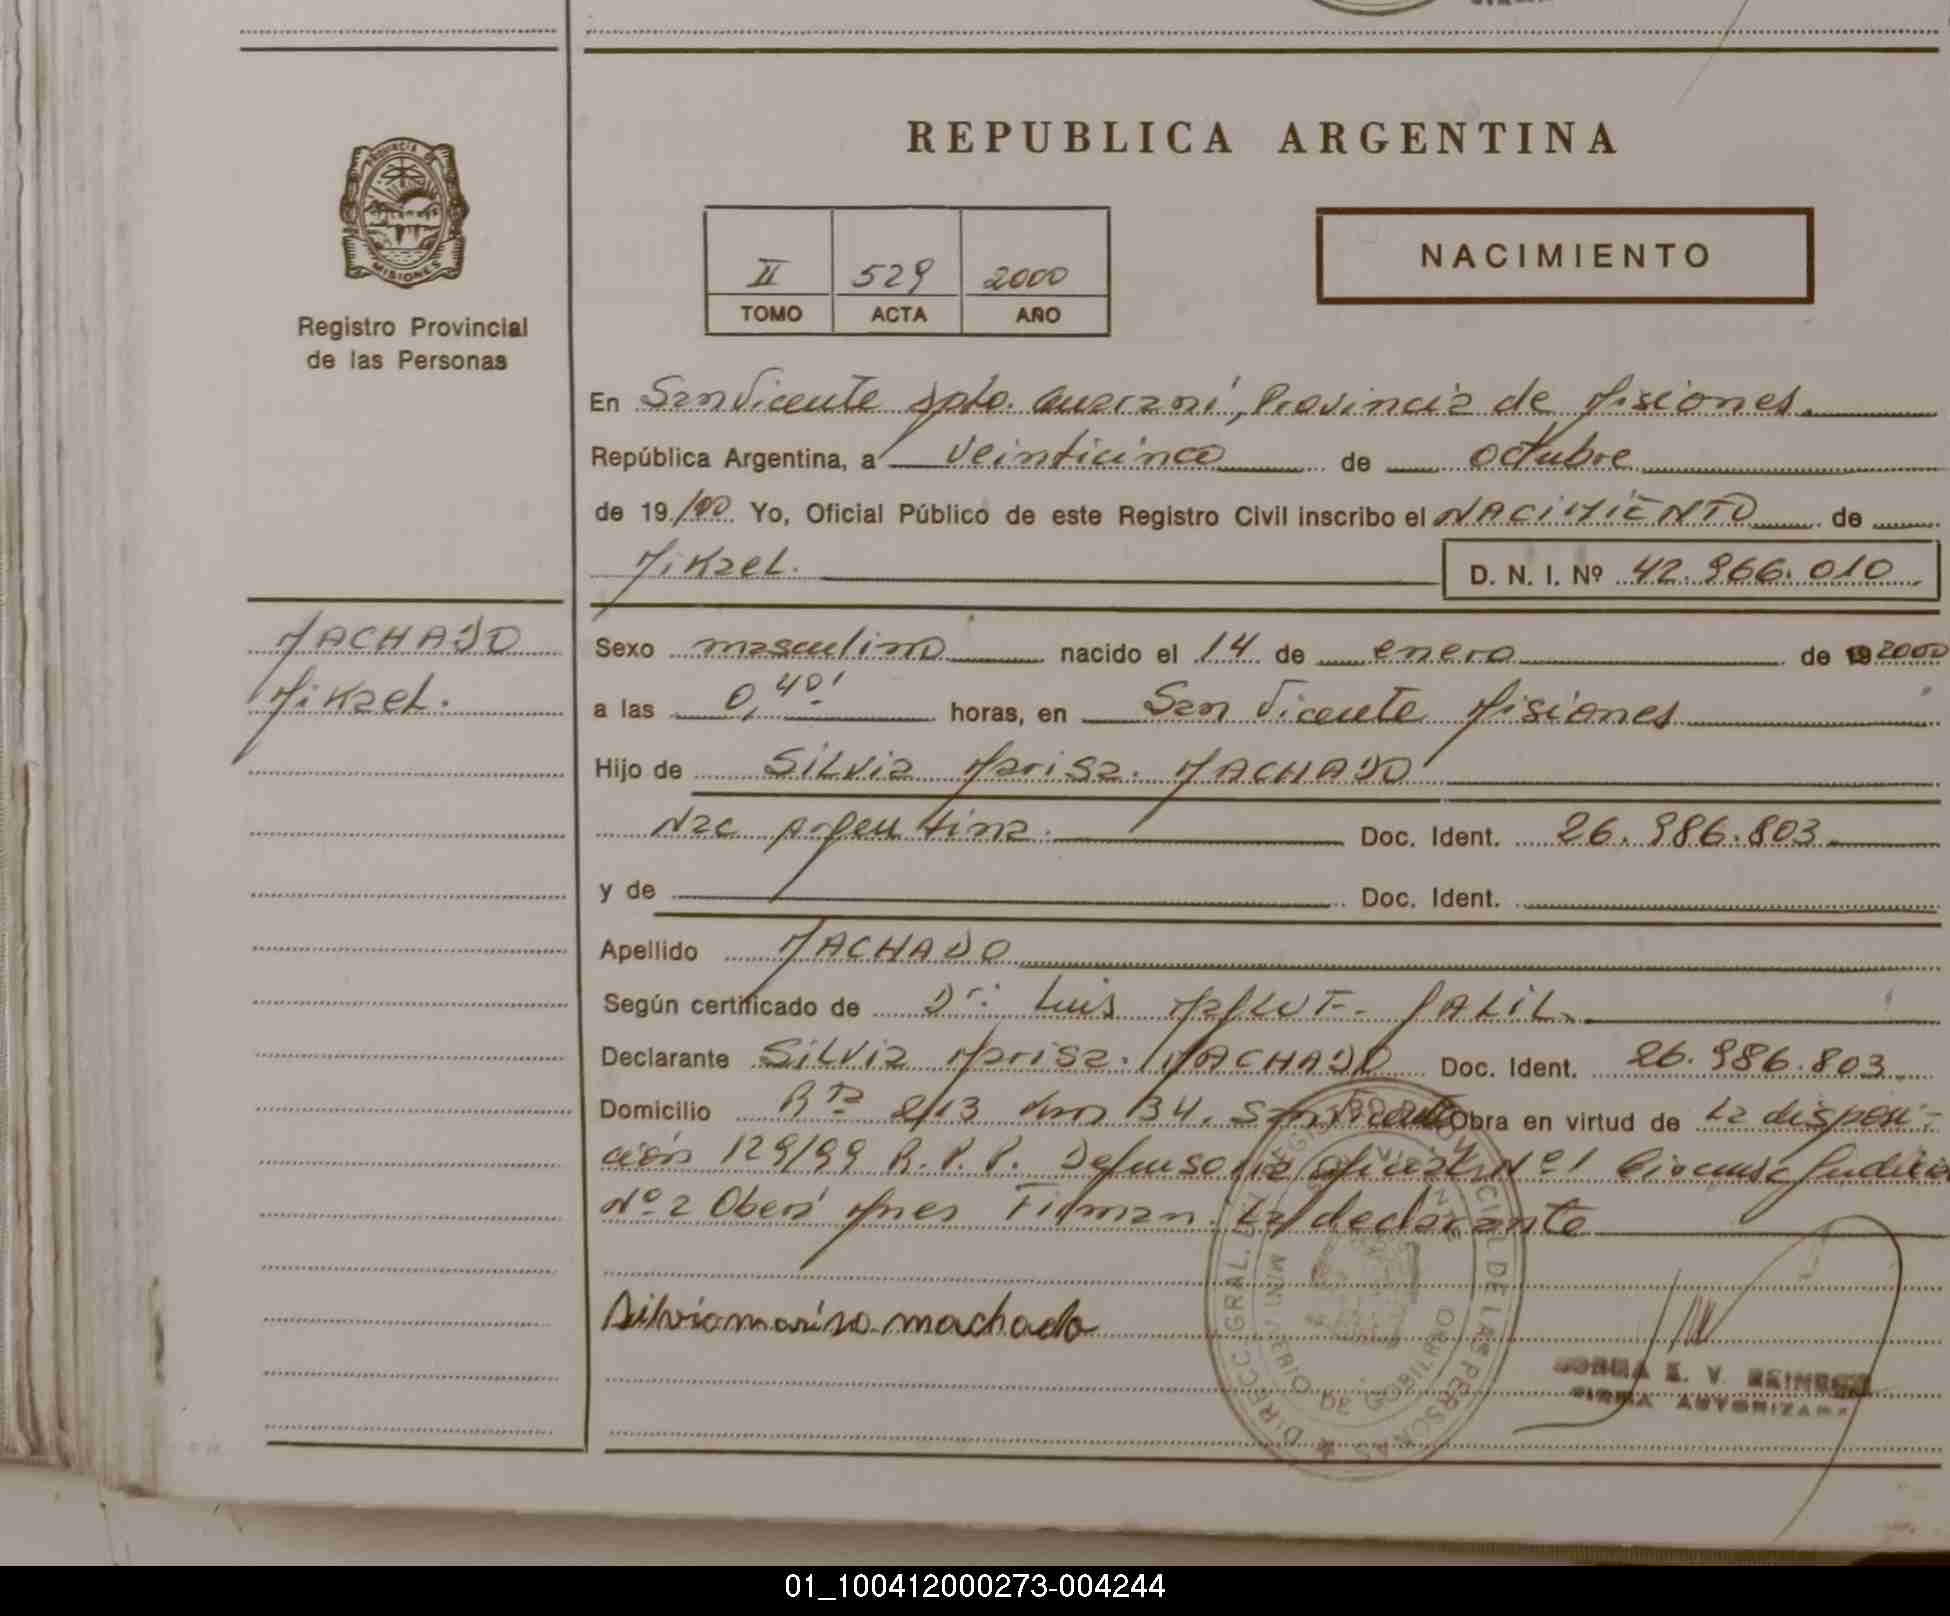 REPUBLICA ARGENTINA
PROVINCIA DE
MISIONES
Registro Provincial
de las Personas
II 529 2000
TOMO ACTA AÑO
NACIMIENTO
En San Vicente Dpto. Guaraní, Provincia de Misiones.
República Argentina, a veinticinco de octubre
de 19/00 Yo, Oficial Público de este Registro Civil inscribo el NACIMIENTO de
Mikael. D. N. I. Nº 42.966.010
MACHADO
Mikael.
Sexo masculino nacido el 14 de enero de 2000
a las 0,40' horas, en San Vicente Misiones
Hijo de Silvia Marisa. MACHADO
Nac Argentina. Doc. Ident. 26.986.803
y de Doc. Ident.
Apellido MACHADO
Según certificado de Dr. Luis
Declarante Silvia Marisa. MACHADO Doc. Ident. 26.986.803
Domicilio Rta 213 km 134. San Vicente Obra en virtud de La disposi-
ción 129/99 R.P.P. Defensoria Oficial Nº1 Circunsc Judicial
Nº2 Oberá Mnes Firman. La declarante
Silvia marisa machado
DIRECC. GRAL. DEL REGISTRO PROVINCIAL DE LAS PERSONAS
MINISTERIO DE GOBIERNO
NORMA E. V.
FIRMA AUTORIZADA
01_100412000273-004244